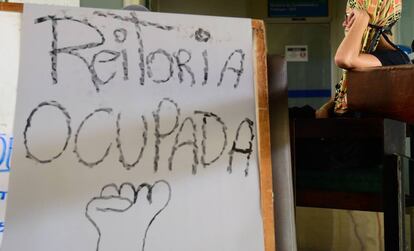 Reitoria
OCUPADA